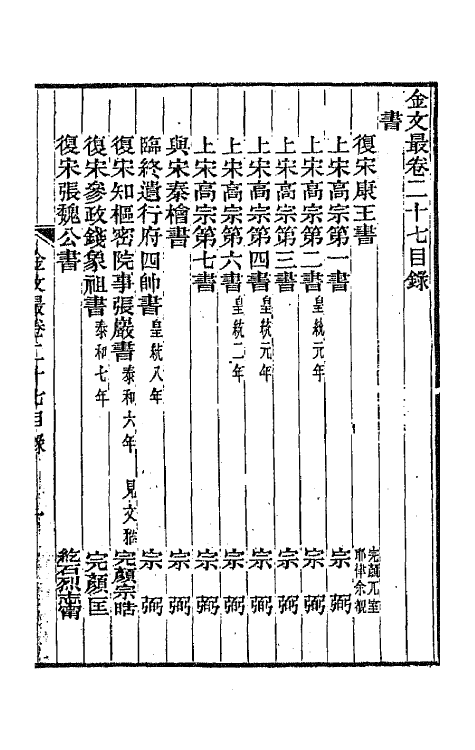 金文最卷二十七目錄
書
復宋康王書 完顏兀室 耶律余覩
上宋高宗第一書 宗弼
上宋高宗第二書 皇統元年 宗弼
上宋高宗第三書 宗弼
上宋高宗第四書 皇統元年 宗弼
上宋高宗第六書 皇統二年 宗弼
上宋高宗第七書 宗弼
與宋秦檜書 宗弼
臨終遺行府四帥書 皇統八年 宗弼
復宋知樞密院事張巖書 泰和六年 見文雅 完顏宗晧
復宋參政錢象祖書 泰和七年 完顏匡
復宋張魏公書 紇石烈志甯
金文最卷二十七目錄